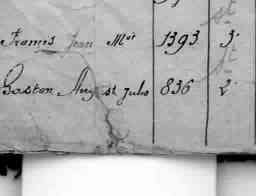 Francis Jean Mst 1393 3"
Gaston Aug st Jules 836 2"